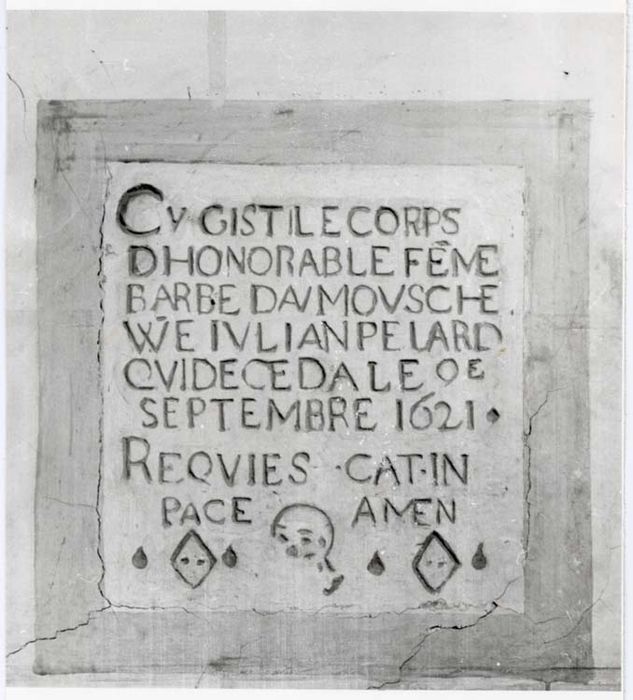 CV GIST ILE CORPS
DHONORABLE FĒME
BARBE DAVMOVSCHE
VVĒ IVLIAN PELARD
QVI DECEDA LE 9E
SEPTEMBRE 1621
REQVIES · CAT · IN
PACE AMEN